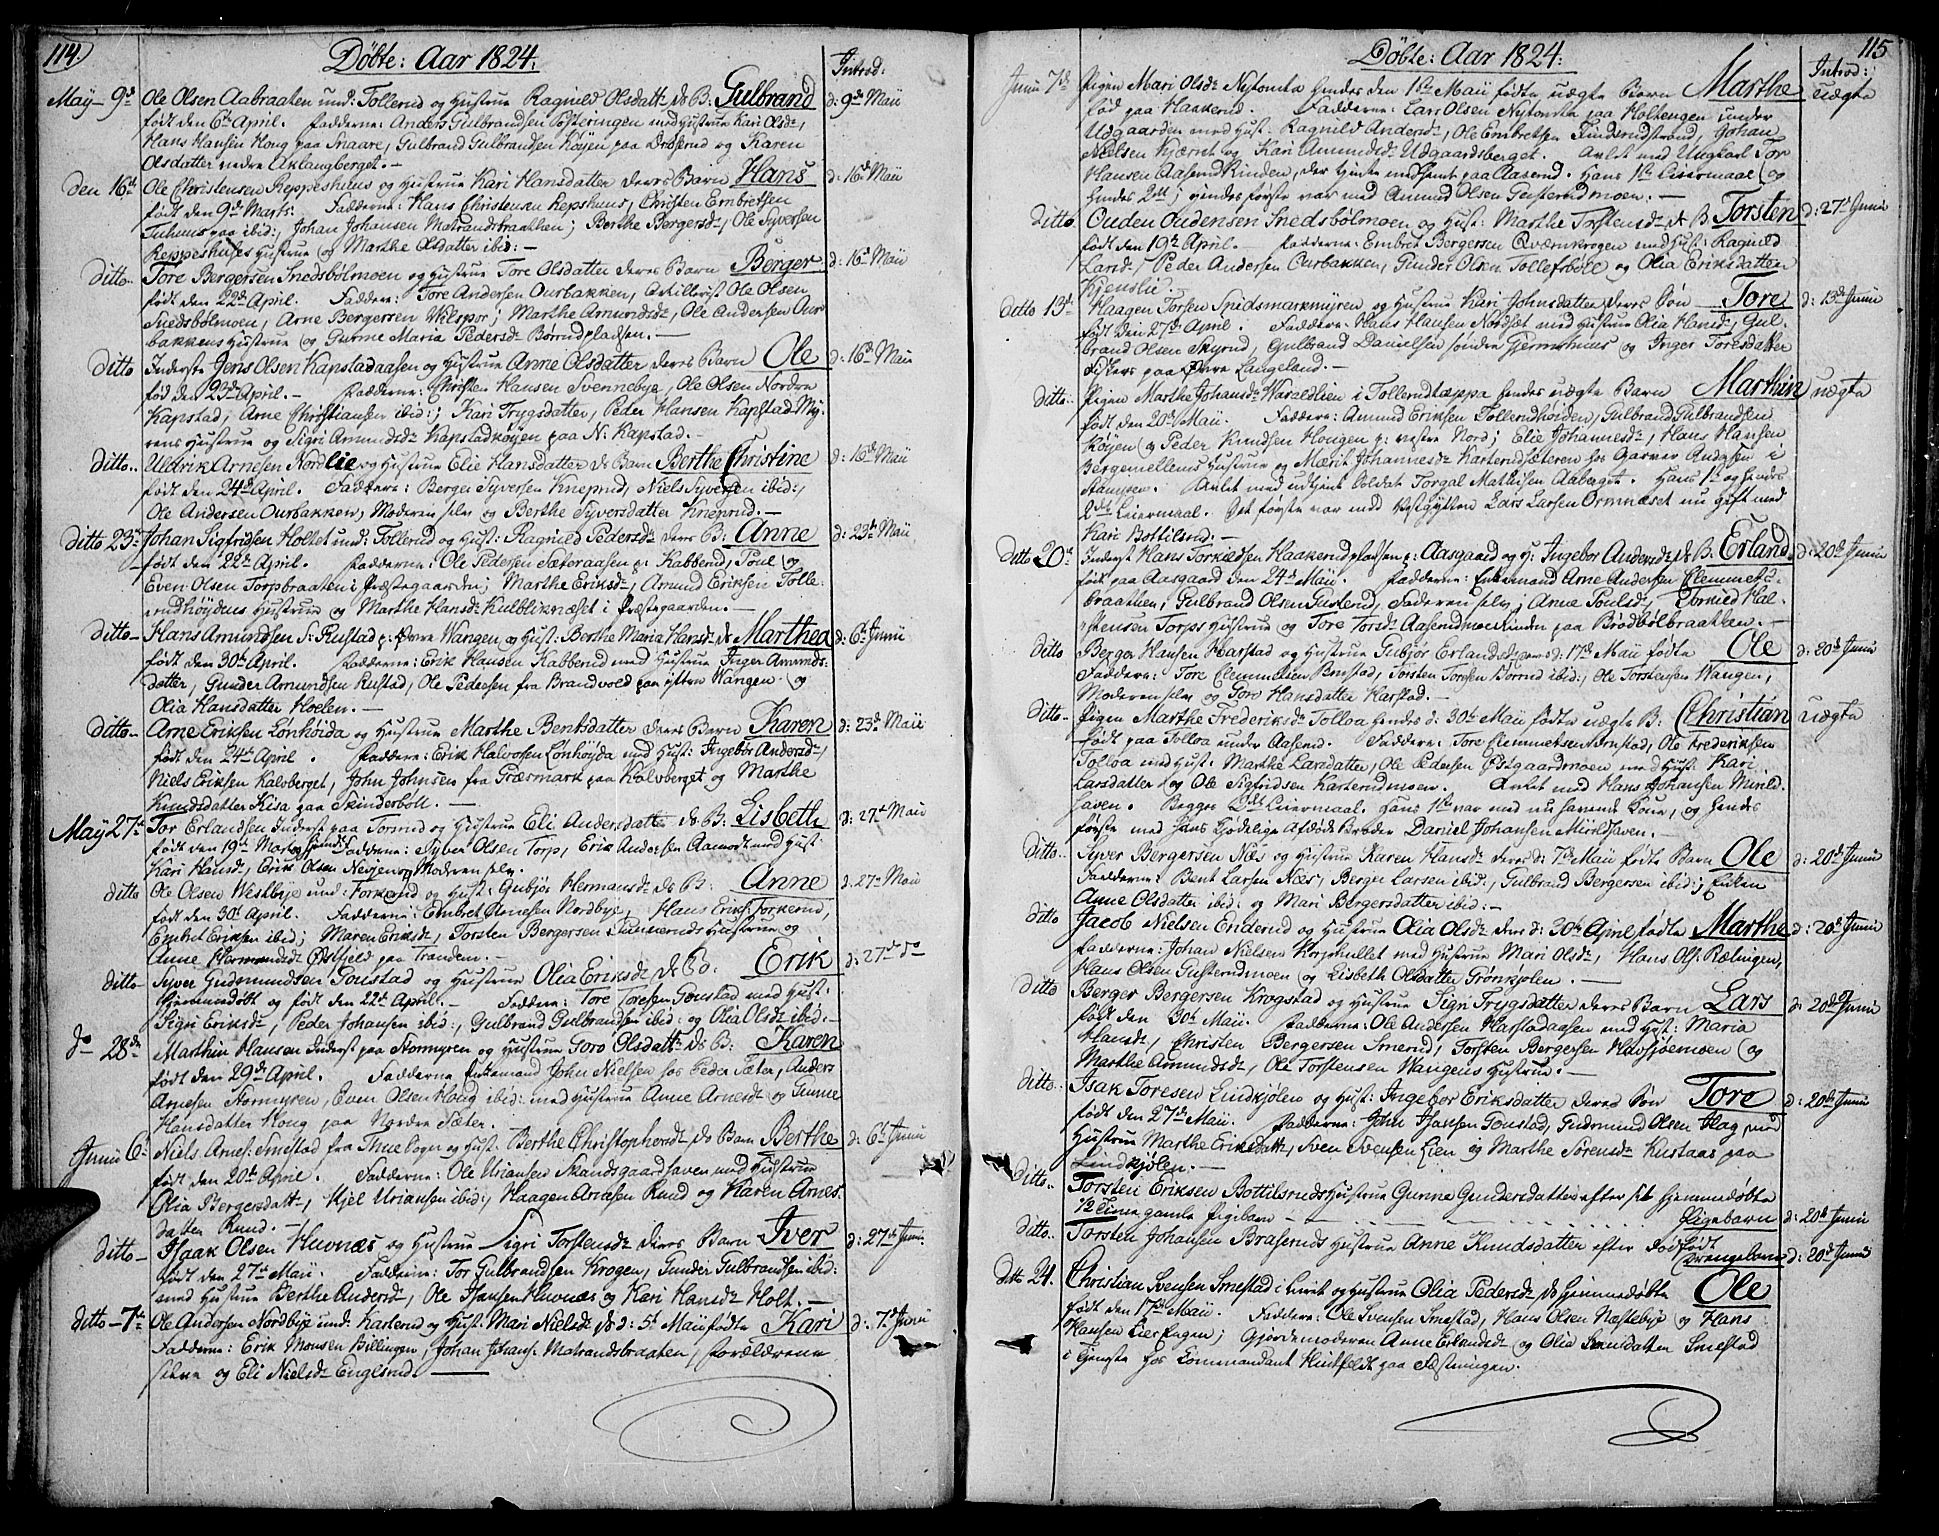 114.
Döbte: Aar 1824.
Introd:
May 9d Ole Olsen Aabraaten und: Tollerud og Hustrue Ragnild Olsdattr Ds B: Gulbrand d: 9de Maii
født den 6te April. Fadderne: Anders Gulbrandsen med Hustrue Kari Olsdr,
Hans Hansen Houg paa Snaare, Gulbrand Gulbrandsen Køyen paa og Karen
Olsdatter nedre Aklangberget. —
den 16d Ole Christensen Reppeshuus og Hustrue Kari Hansdatter deres Barn Hans d: 16de Maii
født den 9de Marts. Faddere: Hans Christensen Repshuus, Christen Embretsen
paa ibid:, Johan Johansen Matrandsbraathen; Berthe Bergersdr, Ole Syversen
Reppeshuses Hustrue og Marthe Olsdatter ibid: —
ditto Tore Bergersen Snedsbølmoen og Hustrue Tore Olsdatter deres Barn Berger d: 16de Maii
født den 22de April. Faddere: Tore Andersen Ourbakken, Artillerist Ole Olsen
Snedsbølmoen, Arne Bergersen; Marthe Amundsdr, Ole Andersen Our-
bakkens Hustrue og Gunne Maria Pedersdr Børrudpladsen. —
ditto Inderste Jens Olsen Kapstadaasen og Hustrue Anne Olsdatter deres Barn Ole d: 16de Maii
fød den 23de April. — Fadderne: Christen Hansen Svennebye, Ole Olsen Nordre
Kapstad, Arne Christiansen ibid:; Kari Trygsdatter, Peder Hansen Kapstad My-
rens Hustrue og Sigri Amundsdr Kapstadkøyen paa N: Kapstad. —
ditto Uldrik Arnesen Nordlie og Hustrue Elie Hansdatter Ds Barn Berthe Christine d: 16de Maii
født den 24de April. Faddere: Berger Syversen Kneprud, Niels Syversen ibid:,
Ole Andersen Ourbakken, Moderen selv og Berthe Syversdatter Kneprud. —
ditto 23de Johan Sigfridsen Holtet und: Tollerud og Hust: Ragnild Pedersdr deres B: Anne d: 23de Maii
født den 22de April. Fadderne: Ole Pedersen Sæteraasen p: Kabberud, Poul og
Even Olsen Torpbraaten i Præstegaarden; Marthe Eriksdr, Amund Eriksen Tolle-
rudhøydens Hustrue og Marthe Hansdr i Præstegaarden. —
ditto Hans Amundsen S: Rustad p: Øvre Wangen, og Hust: Berthe Maria Hansdr Ds Marthea d: 6te Junii
født den 30te April. Fadderne: Erik Hansen Kabberud med Hustrue Inger Amunds-
datter, Gunder Amundsen Rustad, Ole Pedersen fra Brandvold paa Wangen og
Olia Hansdatter Hoelen. —
ditto Arne Eriksen Lønhöida og Hustrue Marthe Bentsdatter deres Barn Karen d: 23de Maii
født den 24de April. Faddere: Erik Halvorsen Lønhöyda med Hust: Ingebor Andersdr,
Niels Eriksen Kalvberget, John Johnsen fra Græsmark paa Kalvberget og Marthe
Knudsdatter Kisa paa Skinderböll. —
May 27de Tor Erlandsen Inderst paa Torrud og Hustrue Eli Andersdatter Ds B: Lisbeth d: 27de Maii
født den 19de Marts Faddere: Syver Olsen Torp, Erik Andersen Aamodt med Hust:
Kari Hansdr, Erik Olsen og Moderen selv.
ditto Ole Olsen Westbye und: Torkerud og Hust: Gubjør Hermansdr Ds B: Anne d: 27de Maii
født den 30te April. Faddere: Embret Arnesen Nordbye, Hans Eriks: Torkerud,
Embret Eriksen ibid; Maren Eriksdr, Torsten Bergersen Hustrue og
Anne Hermansdr Østfjeld paa Tranden. —
ditto Syver Gudmundsen Goustad og Hustrue Olia Eriksdr Ds Bo: Erik d: 27de Do
Hjemmedøbt og født den 22de April. — Faddere: Tore Toresen Goustad med Hust:
Sigri Eriksdr, Peder Johansen ibid:, Gulbrand Gulbrandsen ibid: og Olia Olsdr ibid. —
do 28de Marthin Hansen Inderst paa Stormyren og Hustrue Goro Olsdattr Ds B: Karen
født den 29de April. Fadderne Enkemand John Nielsen hos Peder Sæter, Anders
Arnesen Stormyren, Even Olsen Houg ibid: med Hustrue Anne Arnesdr og Gunne
Hansdatter Houg paa Nordre Sæter.
Junii 6te Niels Arnes: Smestad fra Thue Sogn og Hust: Berthe Christophersdr Ds Barn Berthe d: 6te Junii
født den 20de April. Fadderne: Ole Uriansen Skandsgaardhaven med Hustrue
Olia Bergersdattr, Kjel Uriansen ibid:, Haagen Arnesen Ruud og Karen Arnes-
datter Ruud. —
ditto Isaak Olsen Huvnæs og Hustrue Sigri Torstensdr deres Barn Iver d: 27de Junii
født den 27de Maii. Fadderne: Tor Gulbrandsen Krogen, Gunder Gulbrandsen ibid:
med Hustrue Berthe Andersdr, Ole Isaksen Huvnæs og Kari Hansdr Holt. —
ditto 7de Ole Andersen Nordbye und: Karterud og Hust: Mari Nielsdr Ds d: 5te Maii fødte Kari d: 7de Junii
Fadderne: Erik Monsen Billingen, Johan Johans: Matrandsbraaten, forældrene
selve og Eli Nielsdr Englerud. —
115
Döbte: Aar 1824.
Introd:
Junii 7de Pigen Mari Olsdr Nystomta hendes den 1ste Maii fødte uægte Barn Marthe uægte
fød paa Haakerud. Fadderne: Lars Olsen Nystomta paa Holtengen under
Udgaarden med Hust: Ragnild Andersdr, Ole Embretsen Finderudstrand, Johan
Nielsen Kjærret og Kari Amundsdr Udgaardsberget. Avlet med Ungkarl Tor
Hansen Aaserud, der paa Aaserud. Hans 1ste Leiermaal og
hendes 2det; hendes første var med Amund Olsen Gusterudmoen. —
ditto Ouden Oudensen Snedsbølmoen og Hust: Marthe Torstensdr Ds B Torsten d: 27de Junii
født den 19de April. — Fadderne: Embret Bergersen Qværnkrogen med Hust: Ragnild
Larsdr, Peder Andersen Ourbakken, Gunder Olsen Tollefsböll og Olia Eriksdatter
Kjenslie.
ditto 13de Haagen Torsen Snidsmarkmyren og Hustrue Kari Johnsdatter deres Søn Tore d: 13de Junii
født den 27de April. Faddere: Hans Hansen Nordset med Hustrue Olia Hansdr, Gul-
brand Olsen Skyrud, Gulbrand Danielsen søndre Gjermshuus og Inger Toresdatter
paa Øvre Langeland. —
ditto Pigen Marthe Johansdr Waraldlien i Tollerudtæppa hendes uægte Barn Marthin uægte
født den 20de Maii. Faddere: Amund Eriksen Tollerudhöiden, Gulbrand Gulbrandsen
Køyen og Peder Knudsen Hougen p: vestre Nord; Elie Johannesdr, Hans Hansen
Bergemellems Hustrue og Marit Johannesdr Karterudsæteren hos Garver Andersen i
Avlet med udtjent Soldat Torgal Mathisen Aaberget. Hans 1ste og hendes
2det Leiermaal. Det første var med Lars Larsen Ormnæset nu gift med
Kari Bottilsrud. —
ditto 20de Inderst Hans Torkildsen Haakerudpladsen p: Aasgaard og H: Ingebor Andersdr Ds B: Erland d: 20de Junii
født paa Aasgaard den 24de Maii. Fadderne: Enkemand Arne Andersen Clemmets-
braathen, Gulbrand Olsen Fadderen selv; Anne Poulsdr, Torkild Hal-
stensen Torps Hustrue og Tore Torsdr Aaserudmoen paa Brödbölbraathen. —
ditto Berger Hansen Harstad og Hustrue Gubjør Erlandsdr deres d: 17de Maii fødte Ole d: 20de Junii
Faddere: Tore Clemmetsen Bonstad, Torsten Toresen Börrud ibid:, Ole Torstensen Wangen,
Moderen selv og Goro Hansdatter Harstad. —
ditto Pigen Marthe Frederiksdr Tolloa hendes d: 30te Maii fødte uægte B: Christian uægte
født paa Tolloa under Aaserud. Faddere: Tore Clemmetsen Bonstad, Ole Frederiksen
Tolloa med Hust: Marthe Larsdatter, Ole Pedersen Østgaardmoen med Hust: Kari
Larsdatter og Ole Sigfridsen Karterudmoen. Avlet med Hans Johansen Mürild-
haven. Begges 2det Leiermaal. Hans 1ste var med nu havende Kone, og hendes
første med hans kjødelige Afdöde Broder Daniel Johansen Mürildhaven. —
ditto Syver Bergersen Næs og Hustrue Karen Hansdr deres d: 7de Maii fødte Barn Ole d: 20de Junii
Fadderne: Bent Larsen Næs, Berger Larsen ibid:, Gulbrand Bergersen ibid:; Enken
Anne Olsdatter ibid: og Mari Bergersdatter ibid: —
ditto Jacob Nielsen Enderud og Hustrue Olia Olsdr deres d: 30te April fødte Marthe d: 20de Junii
Fadderne: Johan Nielsen Korpehullet med Hustrue Mari Olsdr, Hans Ols: Rælingen,
Hans Olsen Gusterudmoen og Lisbeth Olsdatter Grönkjølen. —
ditto Berger Bergersen Krogstad og Hustrue Sigri Trygsdatter deres Barn Lars d: 20de Junii
født den 30te Maii. Fadderne: Ole Andersen Harstadaasen med Hust: Maria
Hansdr, Christen Bergersen Smerud, Torsten Bergersen Havsjøemoen og
Marthe Ammundsdr, Ole Torstensen Wangens Hustrue. —
ditto Isak Toresen Lindkjølen og Hust: Ingebor Eriksdatter deres Søn Tore d: 20de Junii
født den 27de Maii. Fadderne: John Isaksen Goustad, Gudmund Olsen Hag med
Hustrue Marthe Eriksdatr, Sven Svensen Lien og Marthe Sørensdr Kustaas paa
Lindkjølen. —
ditto Torsten Eriksen Bottilsruds Hustrue Gunne Gundersdatter efter sit hjemmedøbte
12 Timer gamle Pigebarn — Pigebarn d: 20de Junii
ditto Torsten Johansen Braseruds Hustrue Anne Knudsdatter efter dødfødt
Drengebarn d: 20de Junii
ditto 24. Christian Svensen Smestad i Livet og Hustrue Olia Pedersdr Ds hjemmedøbte Ole
født den 17de Maii. Faddere: Ole Svensen Smestad, Hans Olsen Næstebye og Hans
Hansen Lier Eagen; Gjordemoderen Anne Erlandsdr og Olia Svensdatter Smestad
i Tjeneste hos Commandant Hintfeldt paa Fæstningen.